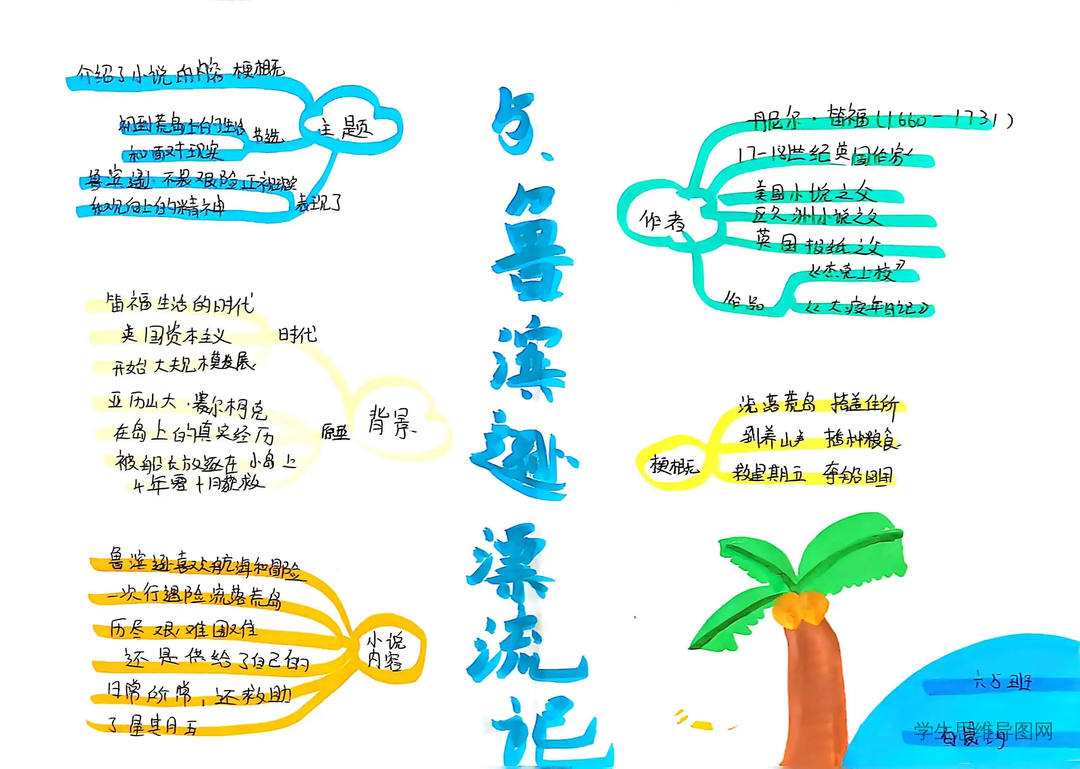 5、鲁滨逊漂流记
主题
介绍了小说的内容 梗概
节选
初到荒岛上的生活
和面对现实
表现了
鲁滨逊不畏艰险正视现实
积极向上的精神
背景
时代
笛福生活的时代
英国资本主义
开始大规模发展
原型
亚历山大·塞尔柯克
在岛上的真实经历
被船大放逐在小岛上
4年零十月获救
小说
内容
鲁滨逊喜欢航海和冒险
一次行遇险流落荒岛
历尽艰难困难
还是供给了自己的
日常所常,还救助
了星其月五
作者
丹尼尔·笛福(1660-1731)
17-18世纪英国作家
美国小说之父
区久洲小说之父
英国报纸之父
作品
《杰克上校》
《大疫年日记》
梗概
流落荒岛 搭盖住所
驯养山羊 播种粮食
救星期五 夺船回国
六5班
学生思维导图网